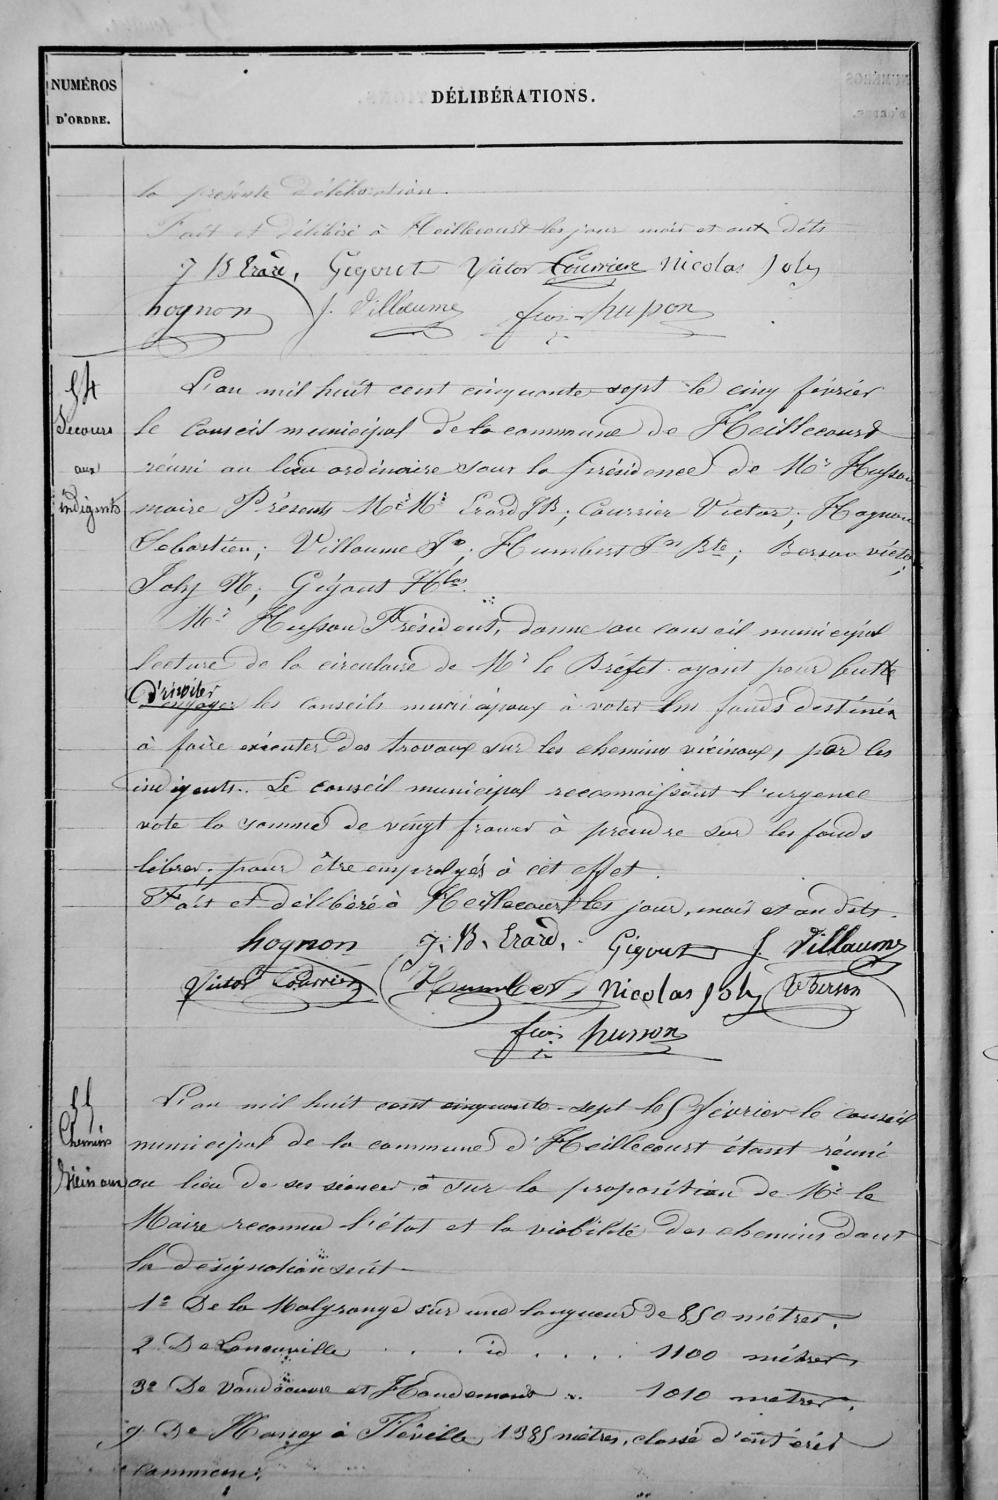 NUMÉROS
D'ORDRE.
DÉLIBÉRATIONS.
la présente délibération.
Fait et délibéré à Heillecourt les jour mois et an dits
J B Erard, Gégout Victor Courrier Nicolas Joly
hognon J. Villaume husson
54
Secours
aux
indigents
L'an mil huit cent cinquante sept le cinq février
le Conseil municipal de la commune de Heillecourt
réuni au lieu ordinaire sous la présidence de Mr Husson
maire Présents Mrs Mrs Erard JB; Courrier Victor; Hognon
Sebastien; Villaume Jn; Humbert Jn Bte; Berson victor;
Joly N; Gégout Nlas.
Mr Husson Président, donne au conseil municipal
lecture de la circulaire de Mr le Préfet ayant pour butte
d'inviter
d'engager les conseils municipaux à voter les fonds destinés
à faire exécuter des travaux sur les chemins vicinaux, par les
indigents. Le conseil municipal reconnaissant l'urgence
vote la somme de vingt francs à prendre sur les fonds
libres, pour être employés à cet effet.
Fait et délibéré à Heillecourt les jour, mois et an dits.
hognon J. B. Erard. Gégout J. Villaume
Victor Courrier Humbert Nicolas Joly V Berson
husson
55
Chemins
Vicinaux
L'an mil huit cent cinquante-sept le 5 février le conseil
municipal de la commune d'Heillecourt étant réuni
au lieu de ses séances à sur la proposition de Mr le
Maire reconnu l'état et la viabilité des chemins dont
la désignation suit
1º De la Malgrange sur une longueur de 850 mètres.
2 De Laneuville . . . id . . . . 1100 mètres
3º De Vandoeuvre et Houdemont .. 1010 metres.
4 De Nancy à Fléville 1385 mètres, classé d'intérêt
commun.